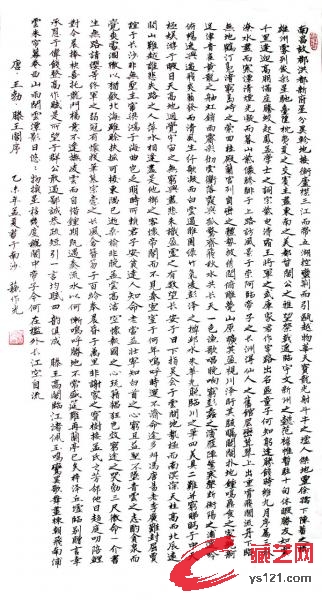 南昌故郡洪都新府星分翼軫地接衡廬襟三江而帶五湖控蠻荊而引甌越物華天寶龍光射斗牛之墟人傑地靈徐孺下陳蕃之榻
雄州霧列俊采星馳臺隍枕夷夏之交賓主盡東南之美都督閻公之雅望棨戟遙臨宇文新州之懿範襜帷暫駐十旬休暇勝友如雲
千里逢迎高朋滿座騰蛟起鳳孟學士之詞宗紫電清霜王將軍之武庫家君作宰路出名區童子何知躬逢勝餞時維九月序屬三秋潦
水盡而寒潭清煙光凝而暮山紫儼驂騑於上路訪風景於崇阿臨帝子之長洲得仙人之舊館層巒聳翠上出重霄飛閣流丹下臨
無地鶴汀鳧渚窮島嶼之縈迴桂殿蘭宮列岡巒之體勢披繡闥俯雕甍山原曠其盈視川澤盱其駭矚閭閻撲地鐘鳴鼎食之家舸艦
迷津青雀黃龍之軸虹銷雨霽彩徹雲衢落霞與孤鶩齊飛秋水共長天一色漁歌唱晚響窮彭蠡之濱雁陣驚寒聲斷衡陽之浦遙吟
俯暢逸興遄飛爽籟發而清風生纖歌凝而白雲遏睢園綠竹氣凌彭澤之樽鄴水朱華光照臨川之筆四美具二難並窮睇眄於中天
極娛遊於暇日天高地迥覺宇宙之無窮興盡悲來識盈虛之有數望長安於日下指吳會於雲間地勢極而南溟深天柱高而北辰遠
關山難越誰悲失路之人萍水相逢盡是他鄉之客懷帝閽而不見奉宣室于何年嗚呼時運不濟命途多舛馮唐易老李廣難封屈賈
誼於長沙非無聖主竄梁鴻於海曲豈乏明時所賴君子安貧達人知命老當益壯寧知白首之心窮且益堅不墜青雲之志酌貪泉而
覺爽處涸轍以猶歡北海雖賒扶搖可接東隅已逝桑榆非晚孟嘗高潔空懷報國之心阮籍猖狂豈效窮途之哭勃三尺微命一介書
生無路請纓等終軍之弱冠有懷投筆慕宗愨之長風舍簪笏于百齡奉晨昏于萬里非謝家之寶樹接孟氏之芳鄰他日趨庭叨陪鯉
對今晨捧袂喜托龍門楊意不逢撫凌雲而自惜鍾期既遇奏流水以何慚嗚呼勝地不常盛筵難再蘭亭已矣梓澤丘墟臨別贈言幸
承恩于偉餞登高作賦是所望于群公敢竭鄙誠恭疏短引一言均賦四韻俱成 滕王高閣臨江渚佩玉鳴鸞罷歌舞畫棟朝飛南浦
雲朱簾暮捲西山雨閒雲潭影日悠悠物換星移幾度秋閣中帝子今何在檻外長江空自流
唐·王勃 滕王閣序 乙未年孟夏書于南沙 作光
藏艺网
ys121.com